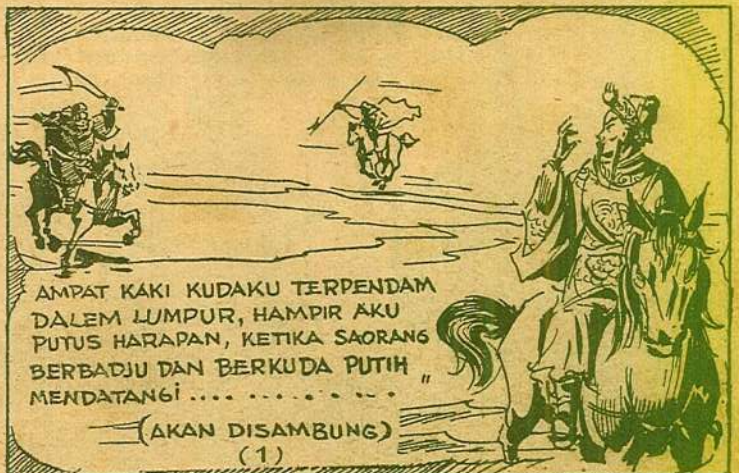 AMPAT KAKI KUDAKU TERPENDAM
DALEM LUMPUR, HAMPIR AKU
PUTUS HARAPAN, KETIKA SAORANG
BERBADJU DAN BERKUDA PUTIH
MENDATANGi ............ "
(AKAN DISAMBUNG)
(1)